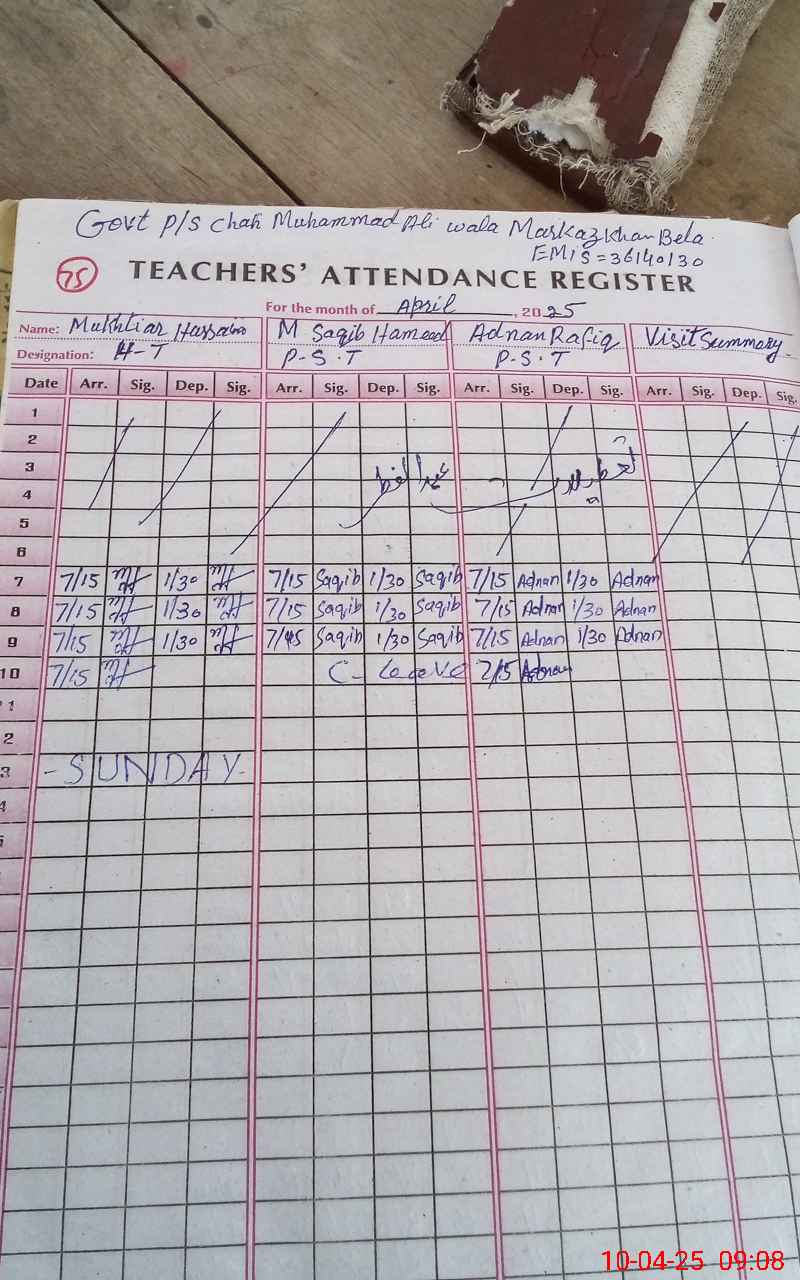 Govt P/S Chah Muhammad Ali wala Markaz Khan Bela.
EMIS = 36140130
75 TEACHERS' ATTENDANCE REGISTER
For the month of April, 2025
Name: Mukhtiar Hussain M Saqib Hameed Adnan Rafiq Visit Summary
Designation: H-T P-S.T P-S.T
Date Arr. Sig. Dep. Sig. Arr. Sig. Dep. Sig. Arr. Sig. Dep. Sig. Arr. Sig. Dep. Sig.
1
2
3 عيد الفطر
4
5
6
7 7/15 1/30 7/15 Saqib 1/30 Saqib 7/15 Adnan 1/30 Adnan
8 7/15 1/30 7/15 Saqib 1/30 Saqib 7/15 Adnan 1/30 Adnan
9 7/15 1/30 7/45 Saqib 1/30 Saqib 7/15 Adnan 1/30 Adnan
10 7/15 C- Leave 7/15 Adnan
1
2
3 - SUNDAY -
4
5
10-04-25 09:08